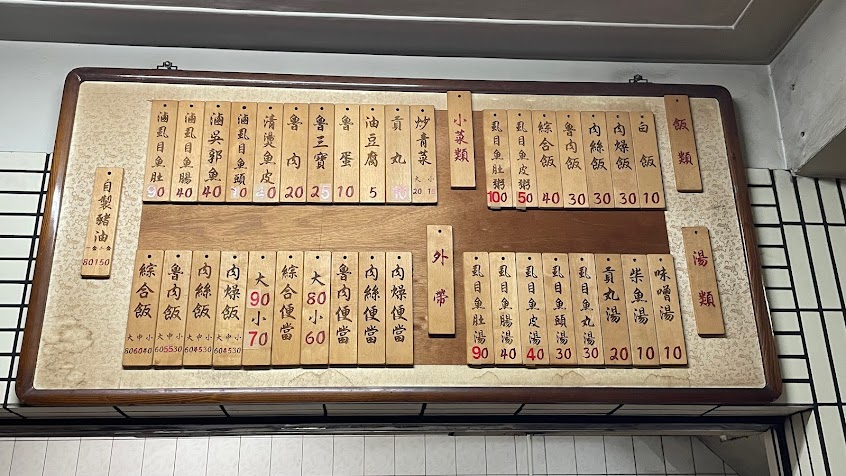 飯類
白飯 10
肉燥飯 30
肉絲飯 30
魯肉飯 30
綜合飯 40
虱目魚皮粥 50
虱目魚肚粥 100
小菜類
炒青菜 大小 20
貢丸
油豆腐 5
魯蛋 10
魯三寶 25
魯肉 20
清燙魚皮
滷虱目魚頭
滷吳郭魚 40
滷虱目魚腸 40
滷虱目魚肚 90
自製豬油
80150
湯類
味噌湯 10
柴魚湯 10
貢丸湯 20
虱目魚丸湯 30
虱目魚頭湯 30
虱目魚皮湯 40
虱目魚腸湯 40
虱目魚肚湯 90
外帶
肉燥便當
肉絲便當
魯肉便當
大80小60
綜合便當
大90小70
肉燥飯 大中小 604530
肉絲飯 大中小 604530
魯肉飯 大中小 605530
綜合飯 大中小 806040